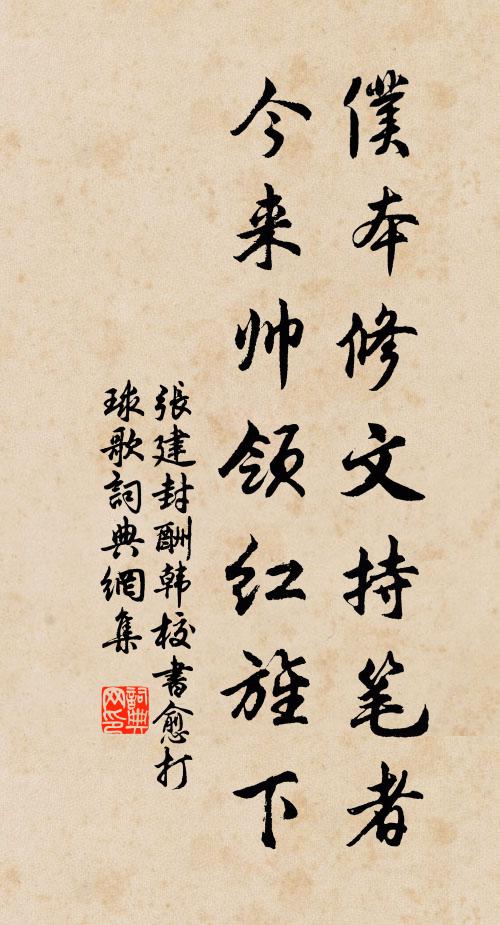 僕本修文持笔者
今来帅领红旌下
張建封酬韩校書愈打
球歌詞典網集
詞典
网印